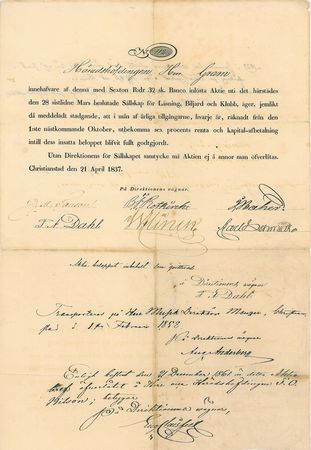 Häradshöfdingen Herr Gram
innehafvare af denna med Sexton Rdr 32 sk. Banco inlösta Aktie uti det härstädes
den 28 sistlidne Mars beslutade Sällskap för Läsning, Biljard och Klubb, äger, jemlikt
då meddeladt stadgande, att i mån af årliga tillgångarne, hvarje år, räknadt från den
1:ste nästkommande Oktober, utbekomma sex procents renta och kapital-afbetalning
intill dess insatta beloppet blifvit fullt godtgjordt.
Utan Direktionens för Sällskapet samtycke må Aktien ej å annor man öfverlåtas.
Christianstad den 21 April 1837.
På Direktionens vägnar.
F. N. Dahl
beloppet
å Direktionens vägnar
F. N. Dahl
Transporteras på Herr Musik Direktör
d 1 Februari 1858
På direktionens vägnar
Aug. Anderberg
Enligt beslut den 21 December 1861 är detta Aktie
öfverlåtit å Herr Häradshöfdingen
Nilson; betygar
På Direktionens vägnar,